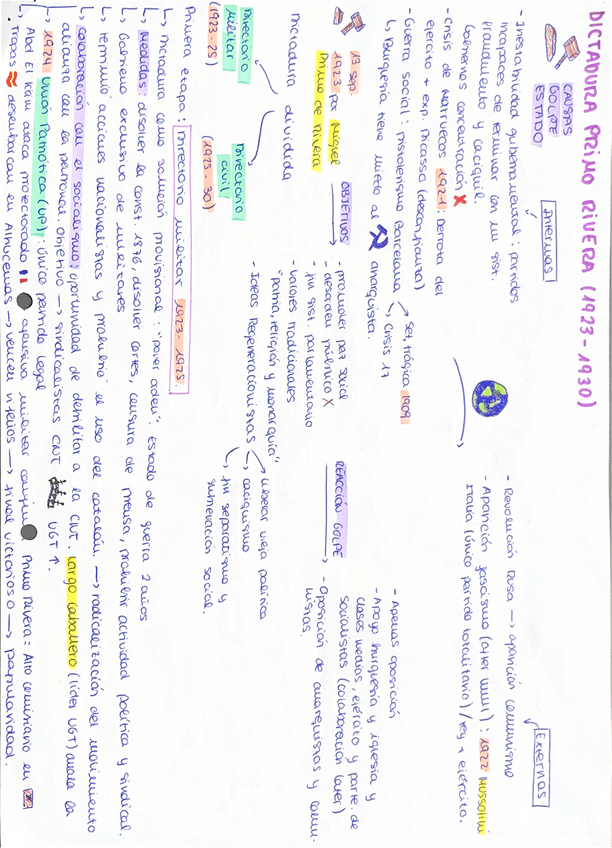 DICTADURA PRIMO RIVERA (1923-1930)
CAUSAS
GOLPE
ESTADO
Internas
- Inestabilidad gubernamental: partidos
incapaces de terminar con un sist.
fraudulento y caciquil.
Gobiernos concentración
- Crisis de Marruecos 1921: derrota del
ejército + exp. Picasso (desconfianza)
- Guerra social: pistolerismo Barcelona
→ set. trágica 1909
→ crisis 17
↳ Burguesía tiene miedo al anarquista.
Externas
- Revolución Rusa → aparición comunismo
- Aparición fascismo (after WWI): 1922 Mussolini
Italia (único partido totalitario) / rey + ejército.
13 sep.
1923 por Miguel
Primo de Rivera
OBJETIVOS
- promover paz social
- desorden público X
- fin sist. parlamentario
- valores tradicionales
"patria, religión y monarquía"
- Ideas Regeneracionistas
→ liberar vieja política
→ caciquismo
→ fin separatismo y
sublevación social.
REACCIÓN GOLPE
- Apenas oposición
- Apoyo burguesía y iglesia y
clases medias, ejército y parte de
socialistas (colaboración later)
- Oposición de anarquistas y comu-
nistas.
Dictadura dividida
Directorio
militar
(1923-25)
Directorio
civil
(1925-30)
Primera etapa: Directorio militar 1923-1925.
↳ Dictadura como solución provisional: "poner orden". Estado de guerra 2 años
↳ Medidas: disolver la const. 1876, disolver cortes, censura de prensa, prohibir actividad política y sindical.
↳ Gobierno exclusivo de militares
↳ Terminó acciones nacionalistas y prohibió el uso del catalán → radicalización del movimiento
↳ Colaboración con el socialismo: oportunidad de debilitar a la CNT. Largo Caballero (líder UGT) avala la
alianza con la patronal. Objetivo → sindicalistas CNT UGT ↑.
↳ 1924 Unión Patriótica (UP): único partido legal
↳ Abd El Krim ataca protectorado ofensiva militar conjun Primo Rivera: Alto comisariado en
Tropas desembarcan en Alhucemas → vencen rifeños → final victorioso → popularidad.